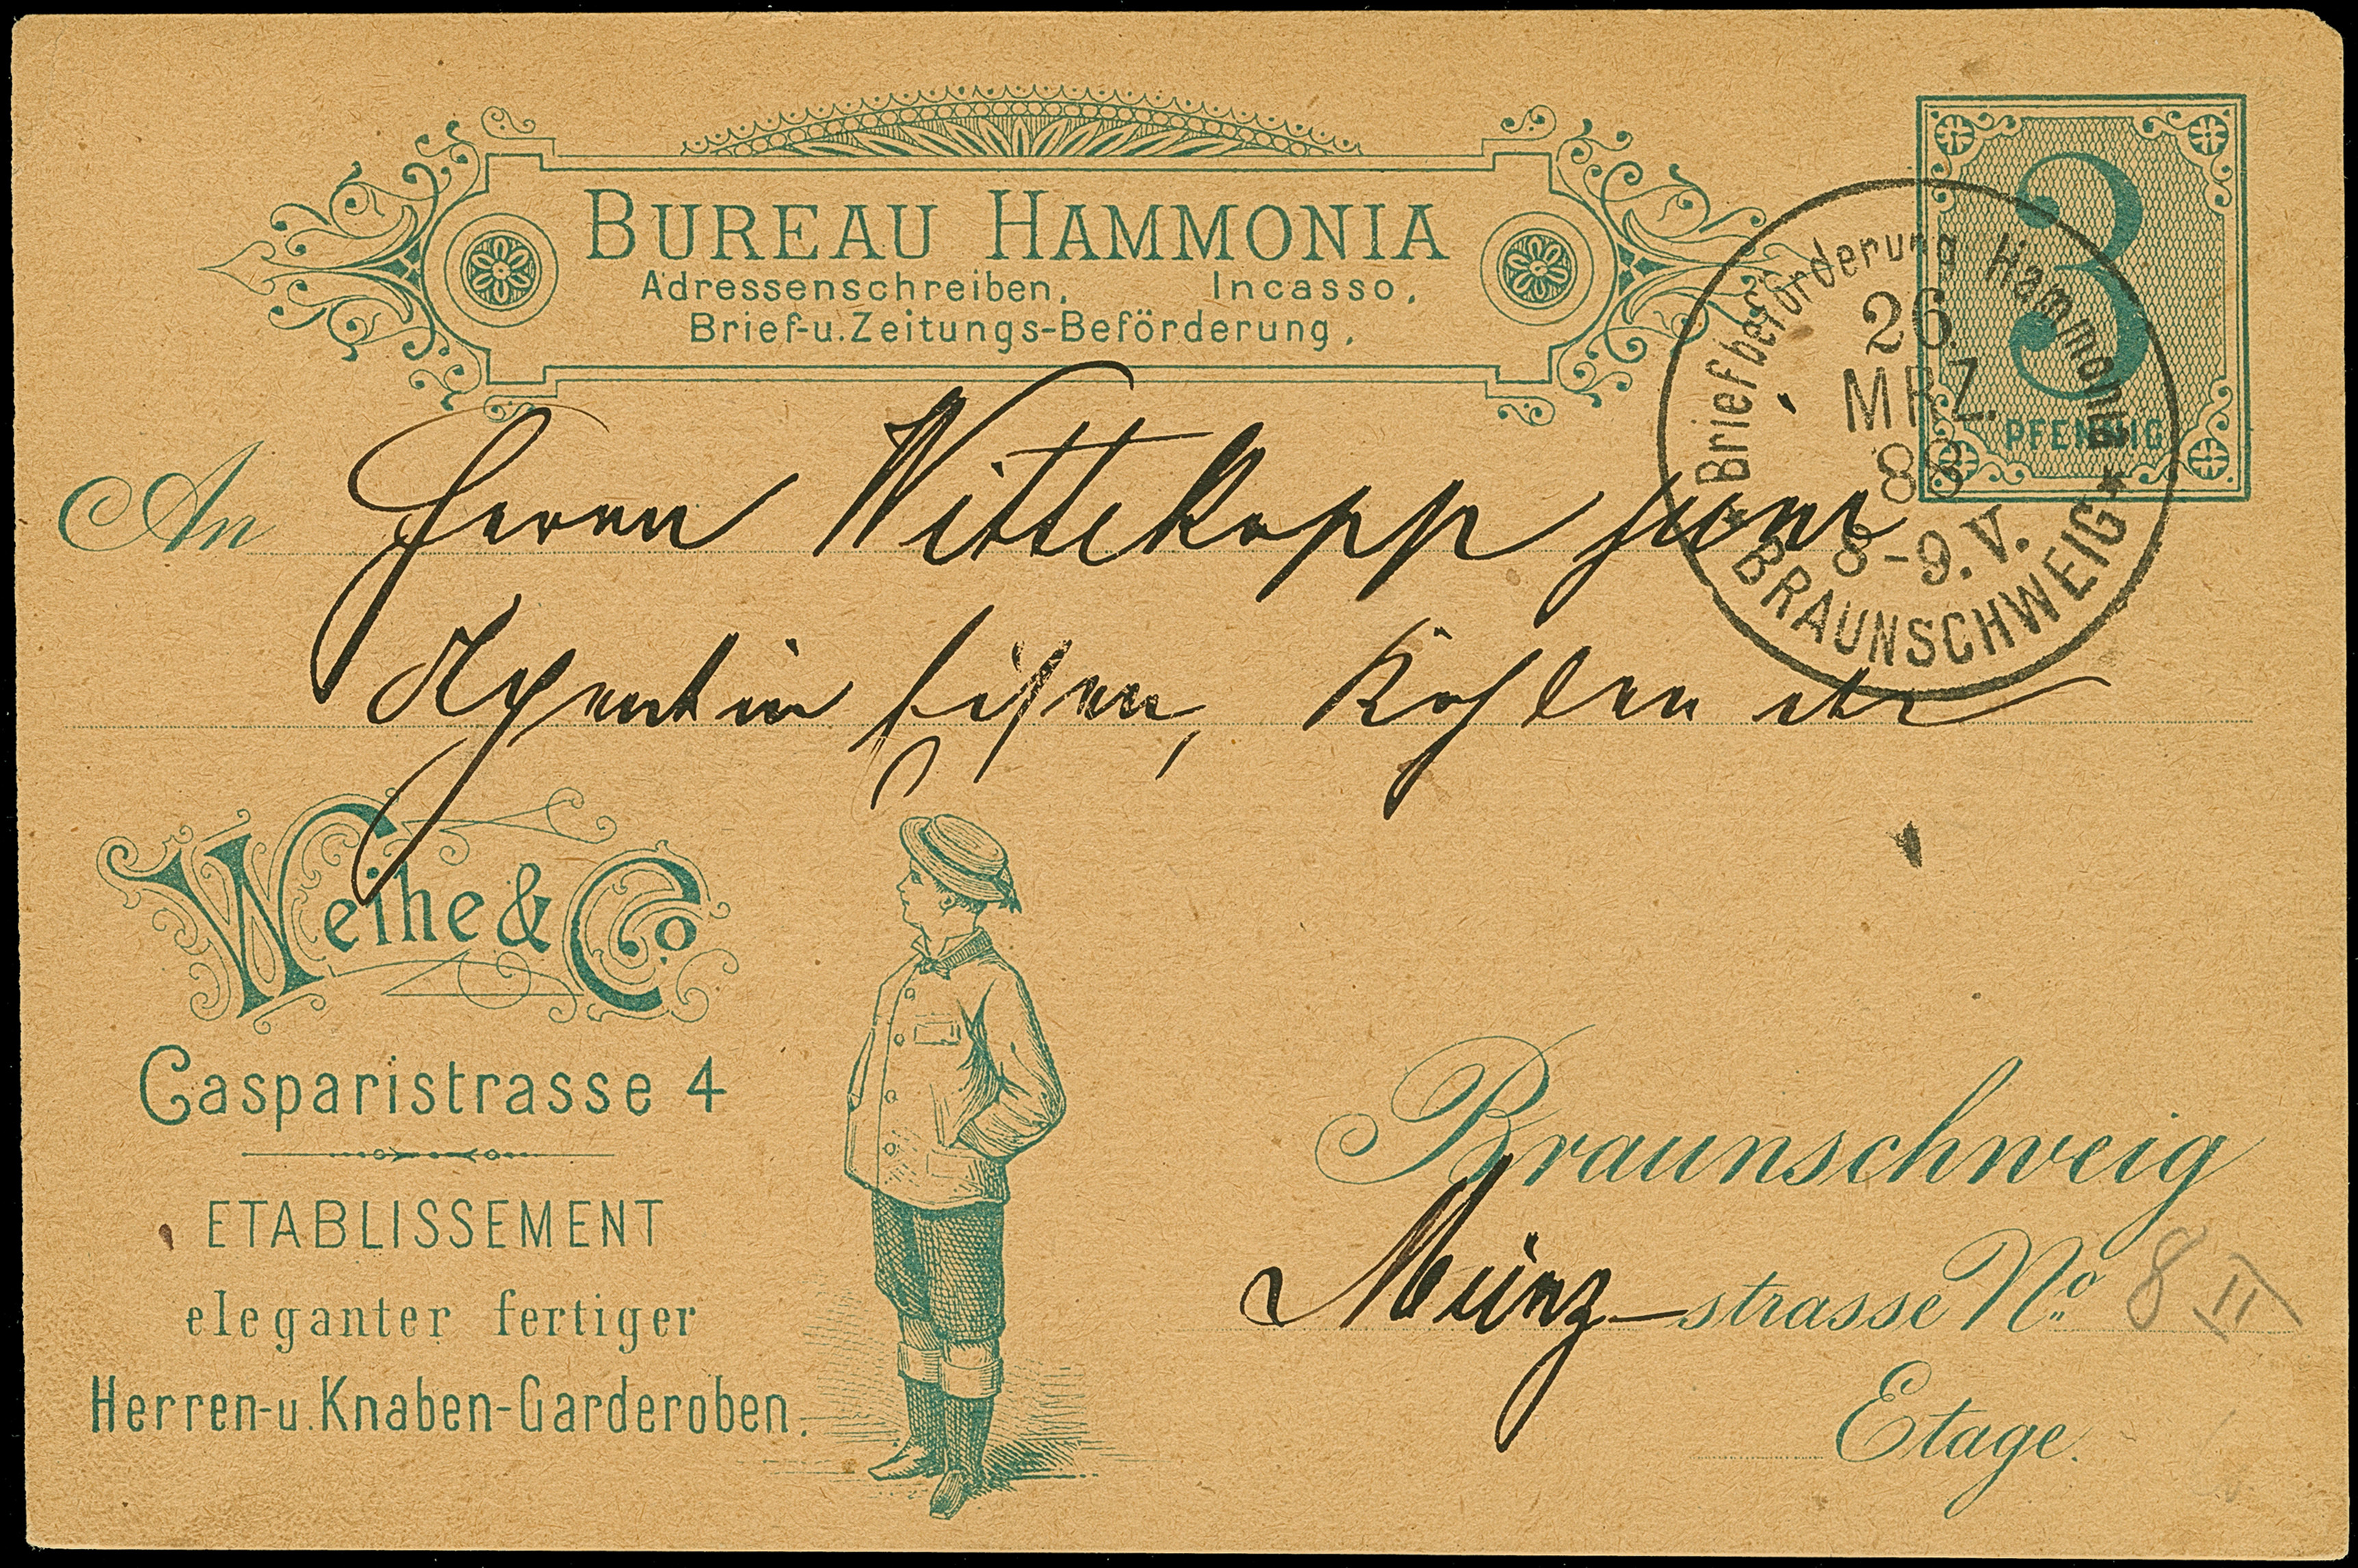 BUREAU HAMMONIA
Adressenschreiben, Incasso,
Brief-u. Zeitungs-Beförderung,
3
PFENNIG
Briefbeförderung Hammonia
26.
MRZ.
88
8-9.V.
* BRAUNSCHWEIG *
An Herrn Wittekopp junr
Agent in Kohlen etc
Weihe & Co.
Casparistrasse 4
ETABLISSEMENT
eleganter fertiger
Herren-u. Knaben-Garderoben.
Braunschweig
Münz-strasse No. 8 II
Etage.